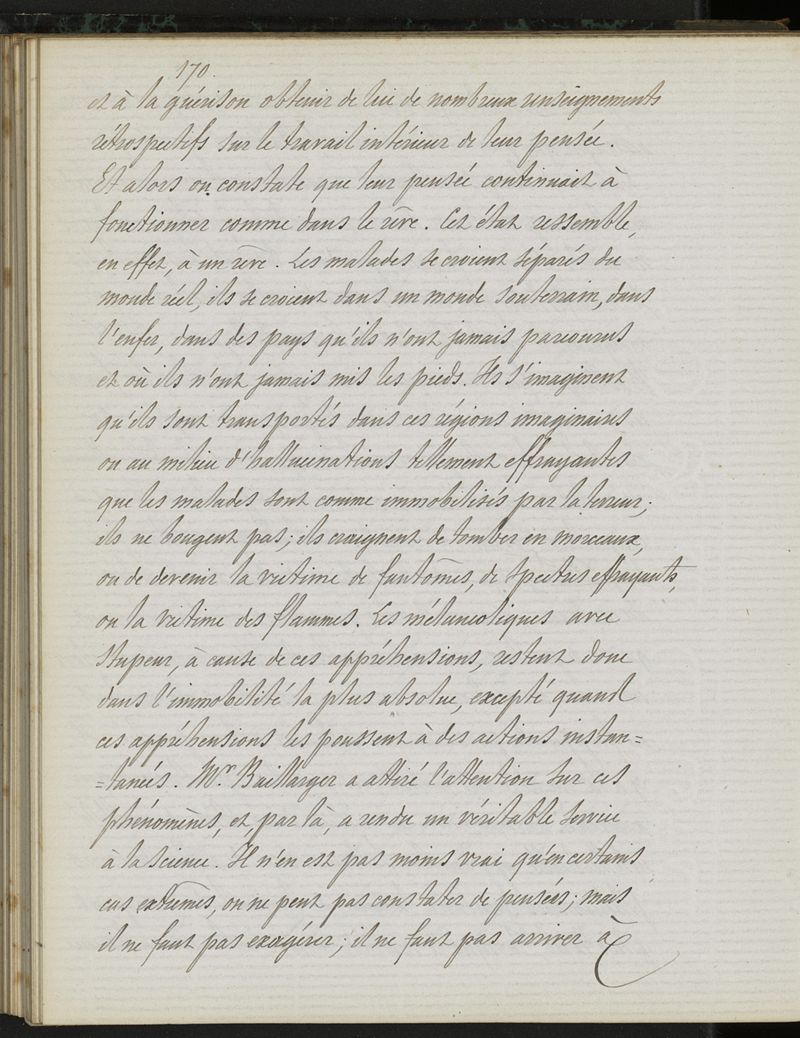 170.
et à la guérison obtenir de lui de nombreux renseignements
rétrospectifs sur le travail intérieur de leur pensée.
Et alors on constate que leur pensée continuait à
fonctionner comme dans le rêve. Cet état ressemble,
en effet, à un rêve. Les malades se croient séparés du
monde réel, ils se croient dans un monde souterrain, dans
l'enfer, dans des pays qu'ils n'ont jamais parcourus
et où ils n'ont jamais mis les pieds. Ils s'imaginent
qu'ils sont transportés dans ces régions imaginaires
ou au milieu d'hallucinations tellement effrayantes
que les malades sont comme immobilisés par la terreur;
ils ne bougent pas; ils craignent de tomber en morceaux,
ou de devenir la victime de fantômes, de spectres effrayants,
ou la victime des flammes. Les mélancoliques avec
stupeur, à cause de ces appréhensions, restent donc
dans l'immobilité la plus absolue, excepté quand
ces appréhensions les poussent à des actions instan=
=tanés. Mr. Baillarger a attiré l'attention sur ces
phénomènes, et, par là, a rendu un véritable service
à la science. Il n'en est pas moins vrai qu'en certains
cas extrêmes, on ne peut pas constater de pensées; mais
il ne faut pas exagérer; il ne faut pas arriver à